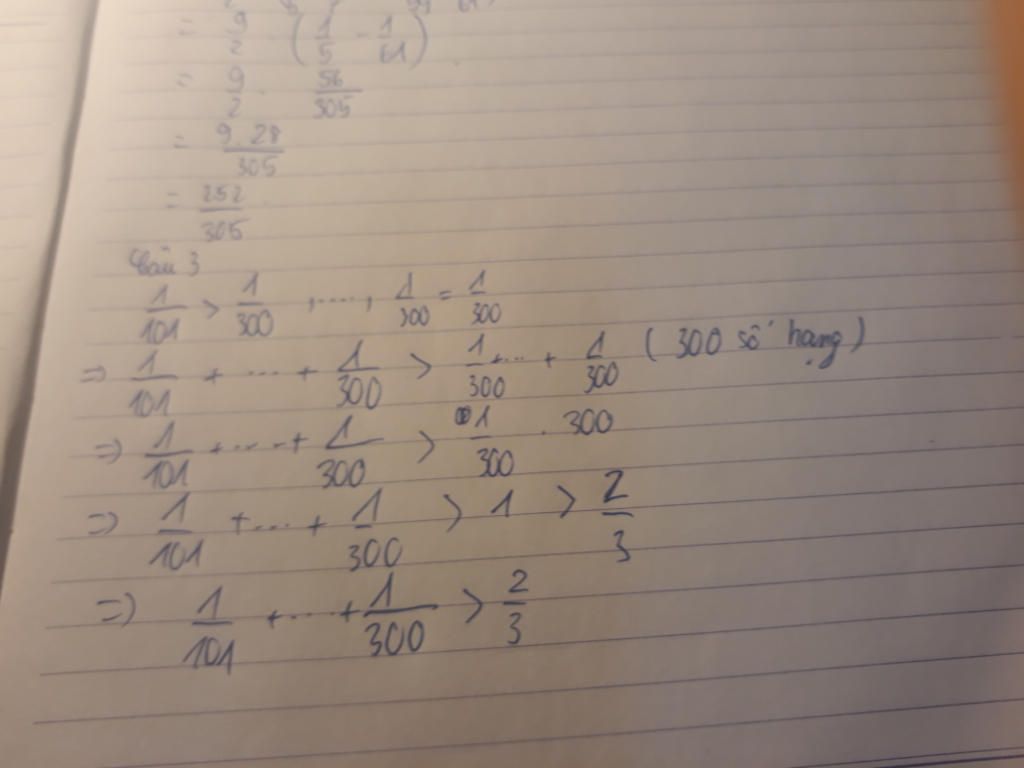 = 9/2 . (1/5 - 1/61)
= 9/2 . 56/305
= 9.28/305
= 252/305
Bài 3
1/101 > 1/300 , ...., 1/300 = 1/300
=> 1/101 + ... + 1/300 > 1/300 +... + 1/300 (300 số hạng)
=> 1/101 + ... + 1/300 > 1/300 . 300
=> 1/101 + ... + 1/300 > 1 > 2/3
=> 1/101 + ... + 1/300 > 2/3